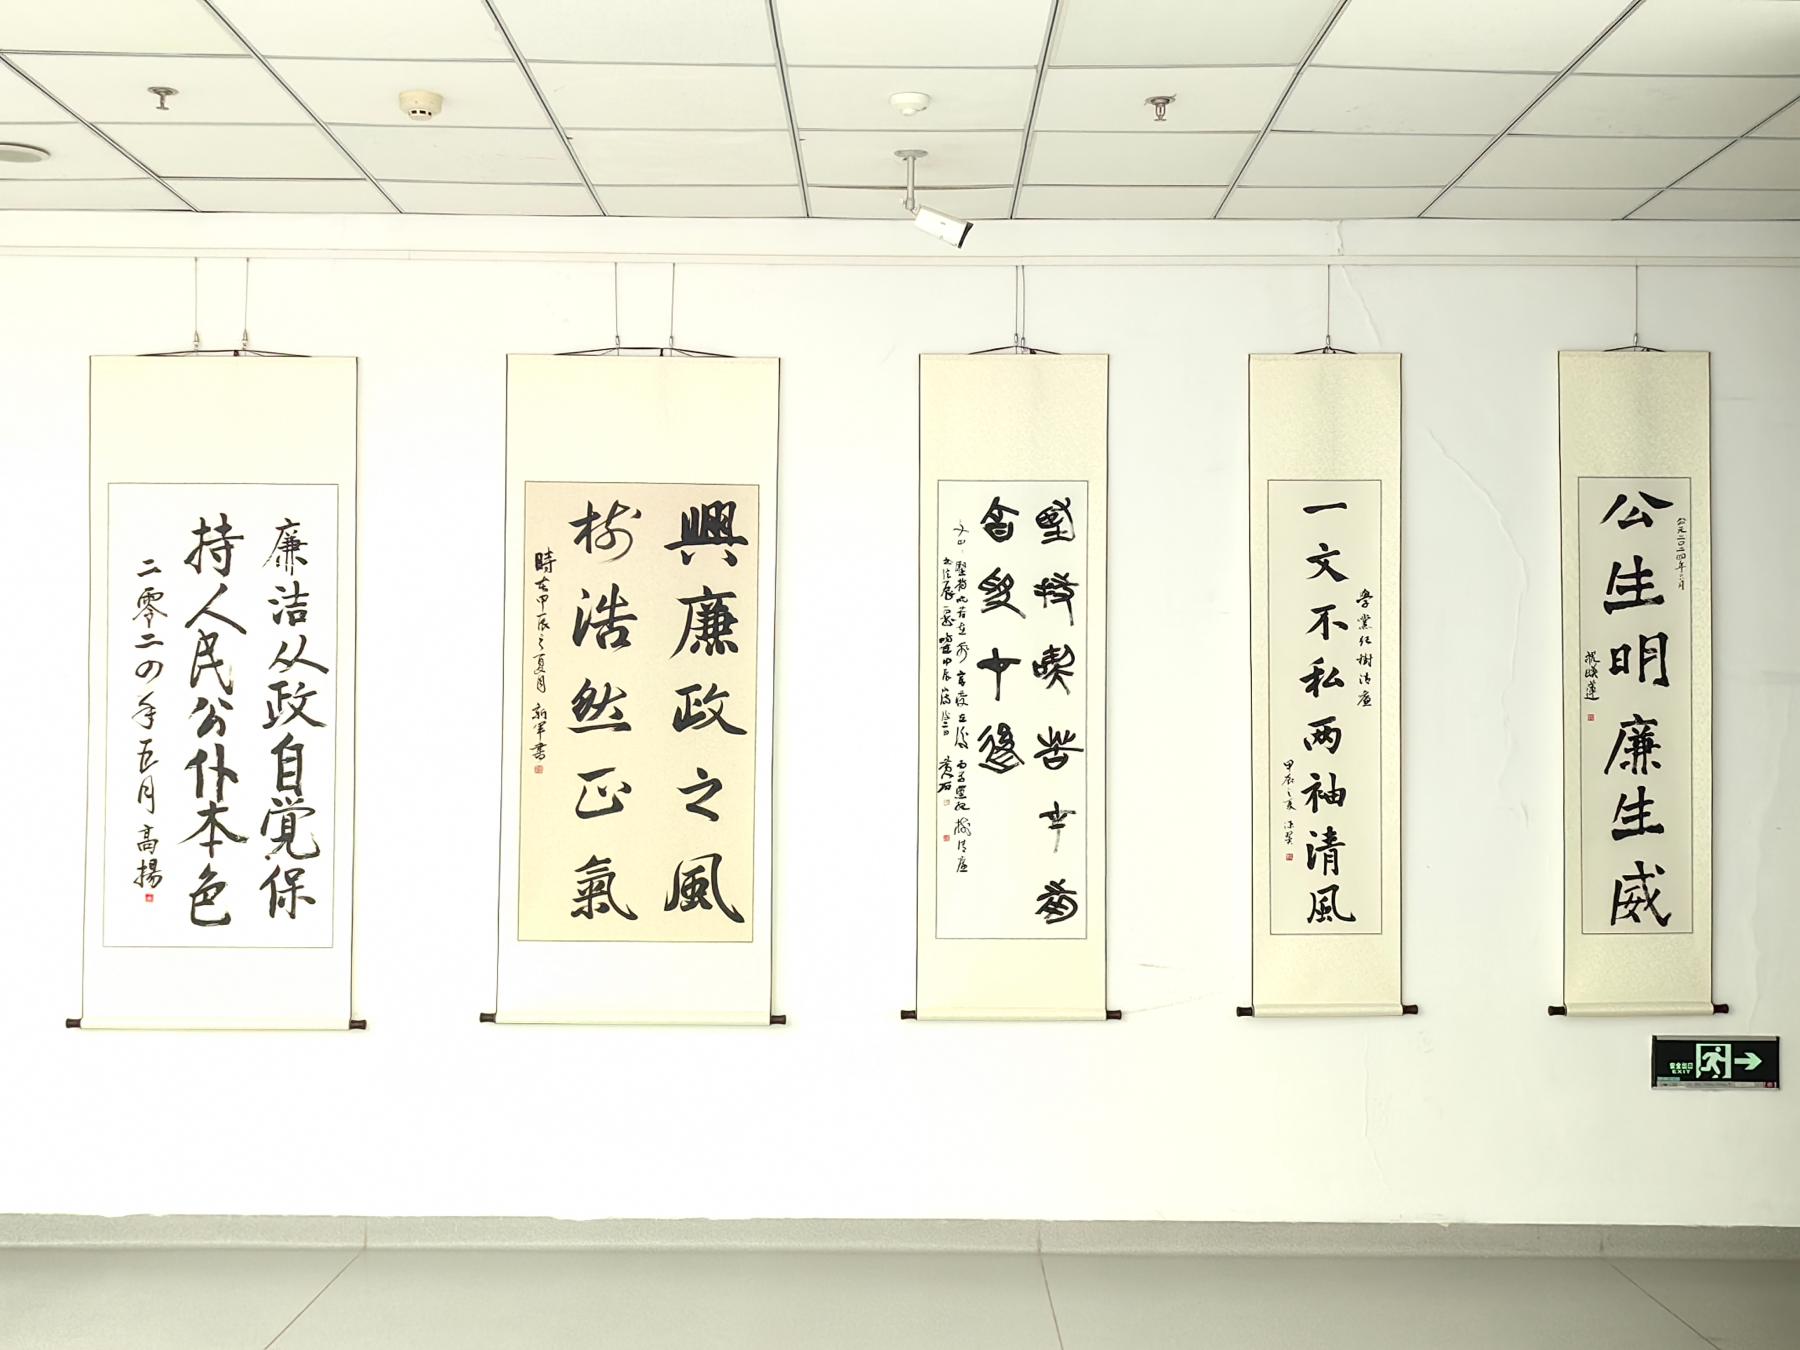 廉洁从政自觉保
持人民公仆本色
二零二四年五月 高揚
興廉政之風
樹浩然正氣
時在甲辰之夏月 新军書
堅持喫苦在前
享受在後
一文不私两袖清风
學黨纪樹清廉
甲辰之夏
公元二〇二四年六月
公生明廉生威
安全出口
EXIT